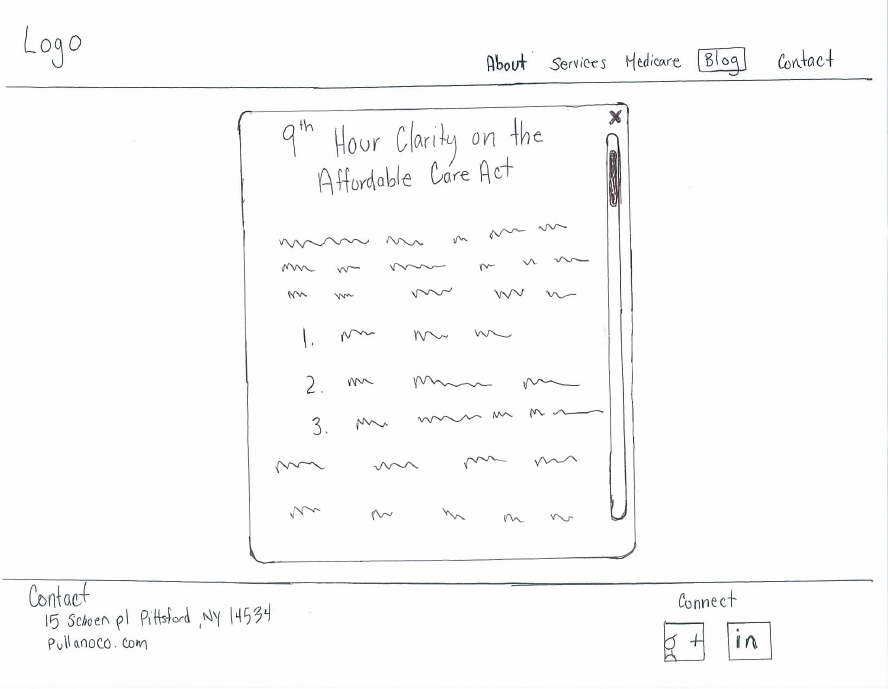 Logo
About Services Medicare Blog Contact
X
9th Hour Clarity on the
Affordable Care Act
1.
2.
3.
Contact
15 Schoen pl Pittsford, NY 14534
Pullanoco.com
Connect
g+ in